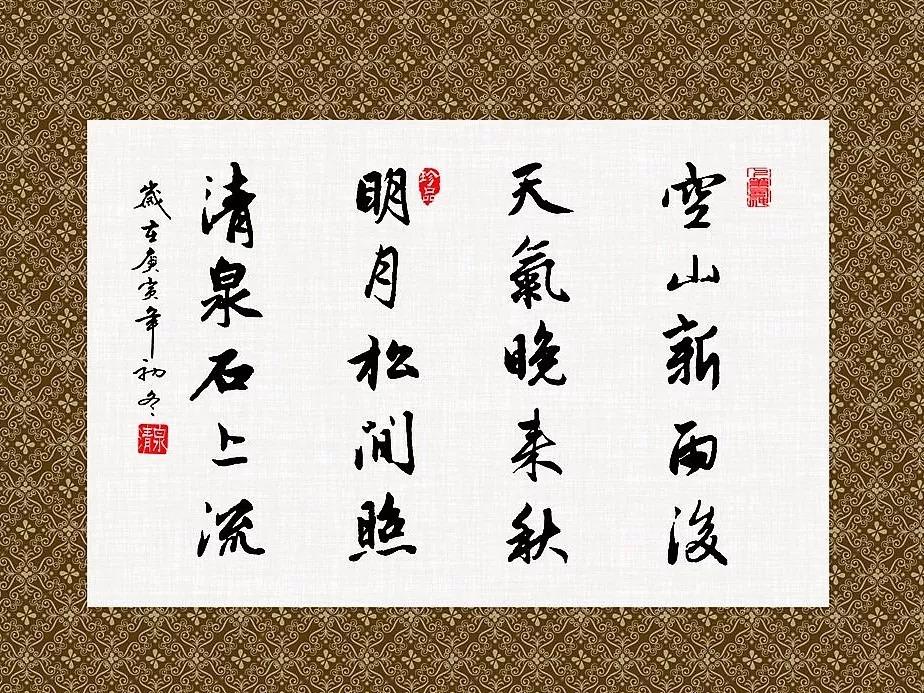 空山新雨後
天氣晚来秋
明月松間照
清泉石上流
歲在庚寅年初冬
珍品
清泉